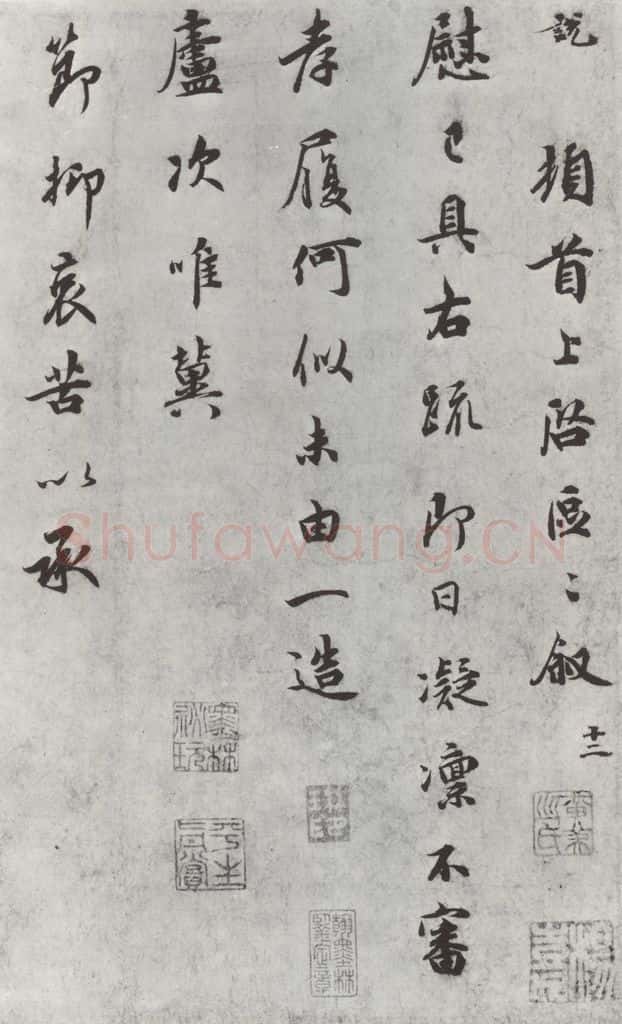 說 頓首上啓區〻敘
慰已具右疏即日凝凛不審
孝履何似未由一造
廬次唯冀
節抑哀苦以承
十二
Shufawang.CN